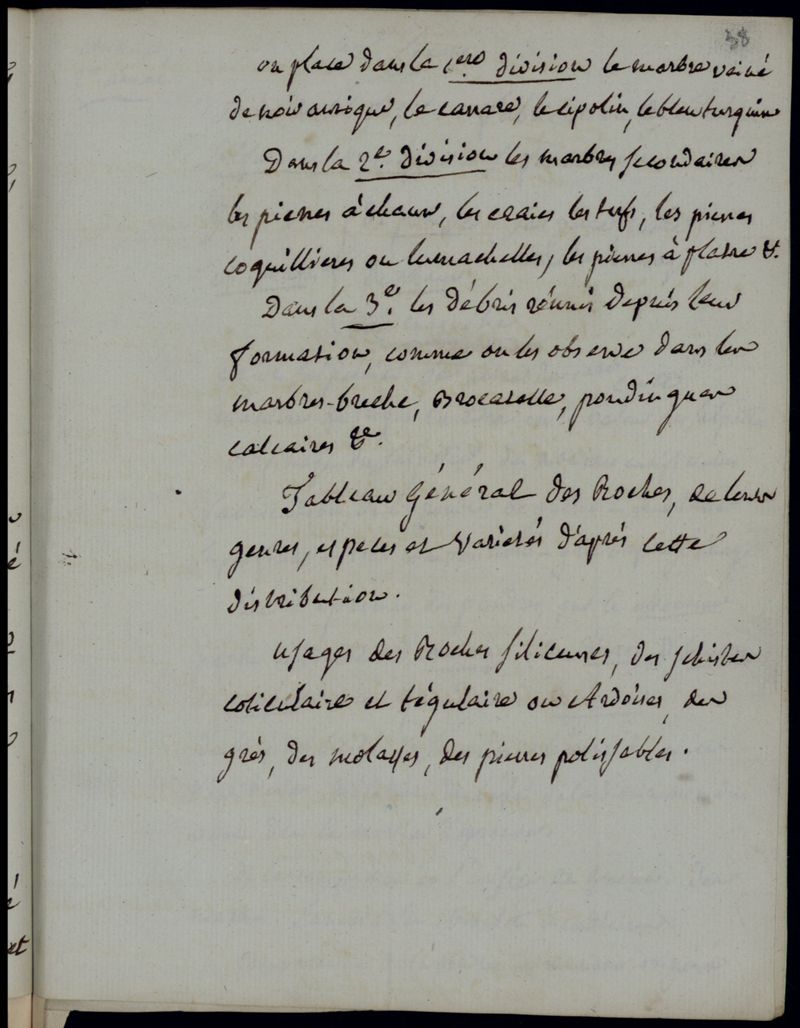 38
on place dans la 1ere division le marbre veiné
de noir antique, le carrare, le cipolin, le bleu turquin
Dans la 2e. division les marbres secondaires
les pierres à chaux, les craies les tufs, les pierres
coquillieres ou lumachelles, les pierres à platre &.
Dans la 3e. les débris réunis depuis leur
formation, comme on les observe dans les
marbres-breche, Brocatelle, poudingues
calcaires &c.
Tableau Général des Roches, de leurs
genres, especes et Varietés d'après cette
distribution.
usages des Roches siliceuses, des schistes
coticulaire et tégulaire ou Ardoises, des
grès, des molasses, des pierres polissables.
et